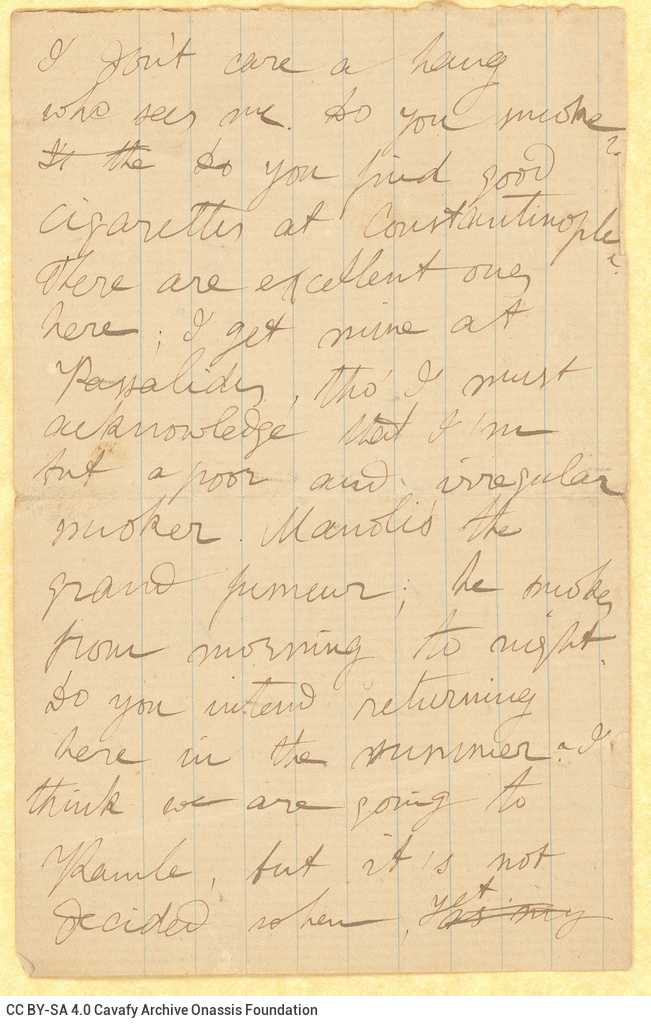 I don't care a hang
who sees me. Do you smoke?
I's the Do you find good
cigarettes at Constantinople?
There are excellent ones
here; I get mine at
, tho' I must
acknowledge that I'm
but a poor and irregular
smoker. Manoli's the
grand fumeur; he smokes
from morning to night.
Do you intend returning
here in the summer? I
think we are going to
Ramle, but it's not
decided when, yet as my
CC BY-SA 4.0 Cavafy Archive Onassis Foundation